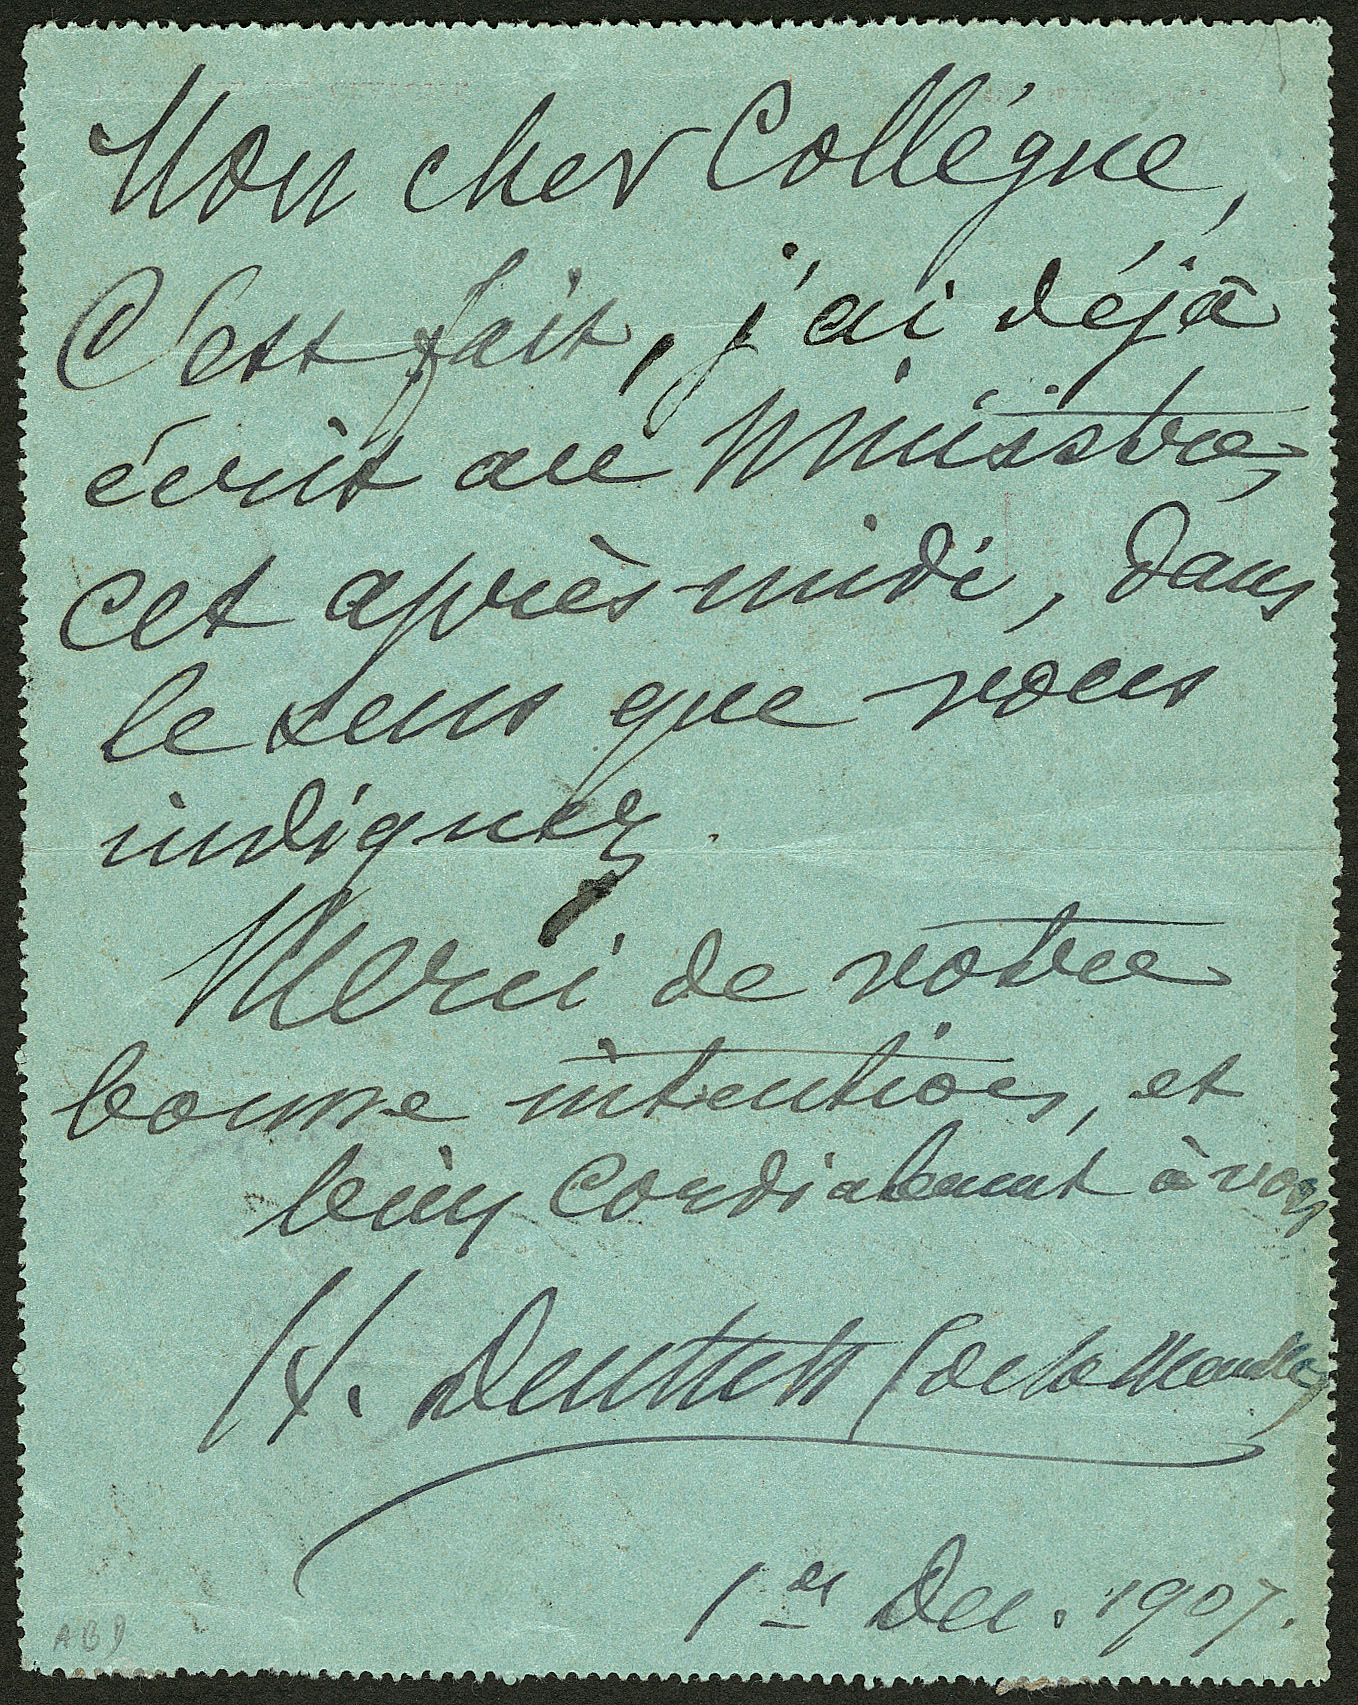 Mon cher Collégue,
C'est fait, j'ai déjà
écrit au Ministre,
cet après-midi, dans
le sens que vous
indiquez.
Merci de votre
bonne intention, et
bien cordialement à vous
H. Deutsch (de la Meurthe)
1er Dec. 1907.
ABD